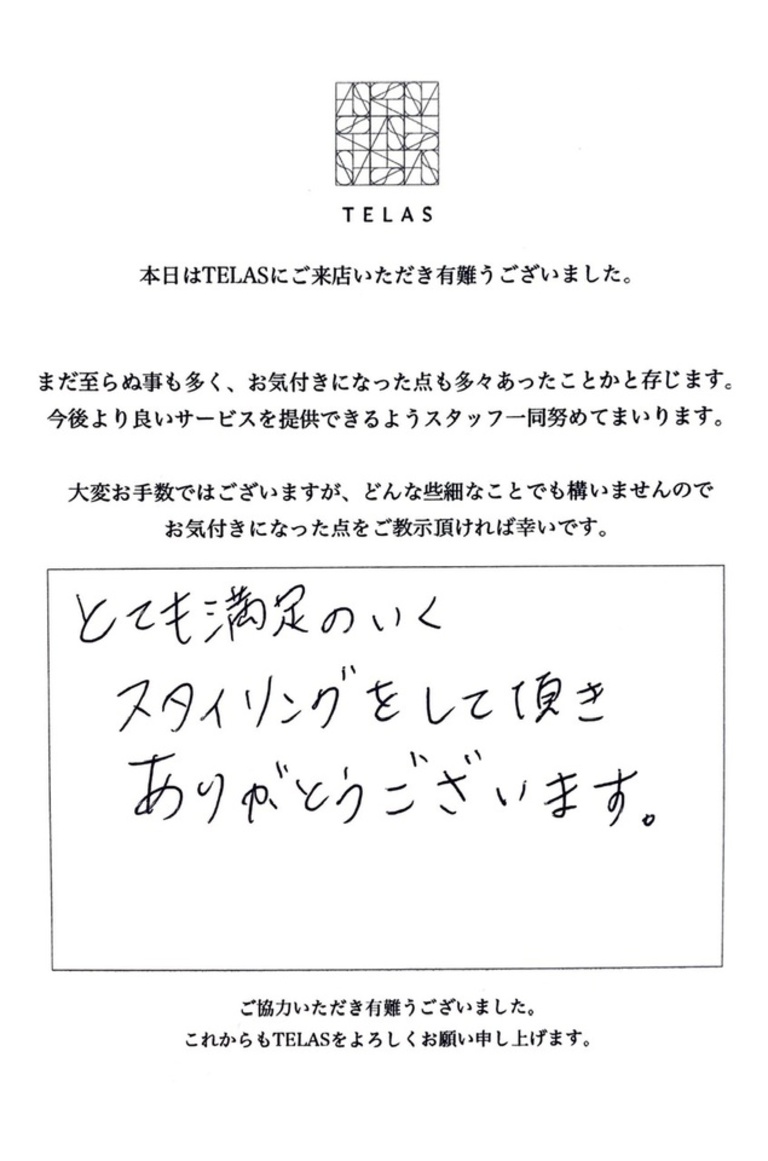 TELAS
本日はTELASにご来店いただき有難うございました。
まだ至らぬ事も多く、お気付きになった点も多々あったことかと存じます。
今後より良いサービスを提供できるようスタッフ一同努めてまいります。
大変お手数ではございますが、どんな些細なことでも構いませんので
お気付きになった点をご教示頂ければ幸いです。
とても満足のいく
スタイリングをして頂き
ありがとうございます。
ご協力いただき有難うございました。
これからもTELASをよろしくお願い申し上げます。